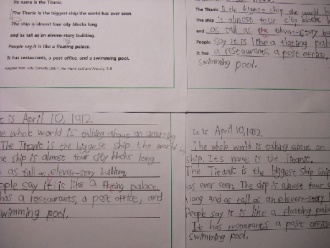 Its name is the Titanic
The Titanic is the biggest ship the world has ever seen.
The ship is almost four city blocks long
and as tall as an eleven-story building.
People say it is like a floating palace.
It has restaurants, a post office, and a swimming pool.
The Titanic is the biggest ship the world
The ship is almost four city blocks
as tall as the eleven-story
People say it is like a floating
a restaurants, a post office,
swimming pool.
is April 10, 1912
the whole world is talking about an
The Titanic is the biggest ship the world
the ship is almost four city blocks long
as tall as eleven-story building
People say it is like a floating palace.
has a restaurants, a post office, and
swimming pool.
is April 10, 1912
The whole world is talking about an
ship. Its name is the Titanic.
The Titanic is the biggest ship
has ever seen. The ship is almost four
long and as tall as an eleven-story
People say it is like a floating palace
It has restaurants, a post office, and
swimming pool.